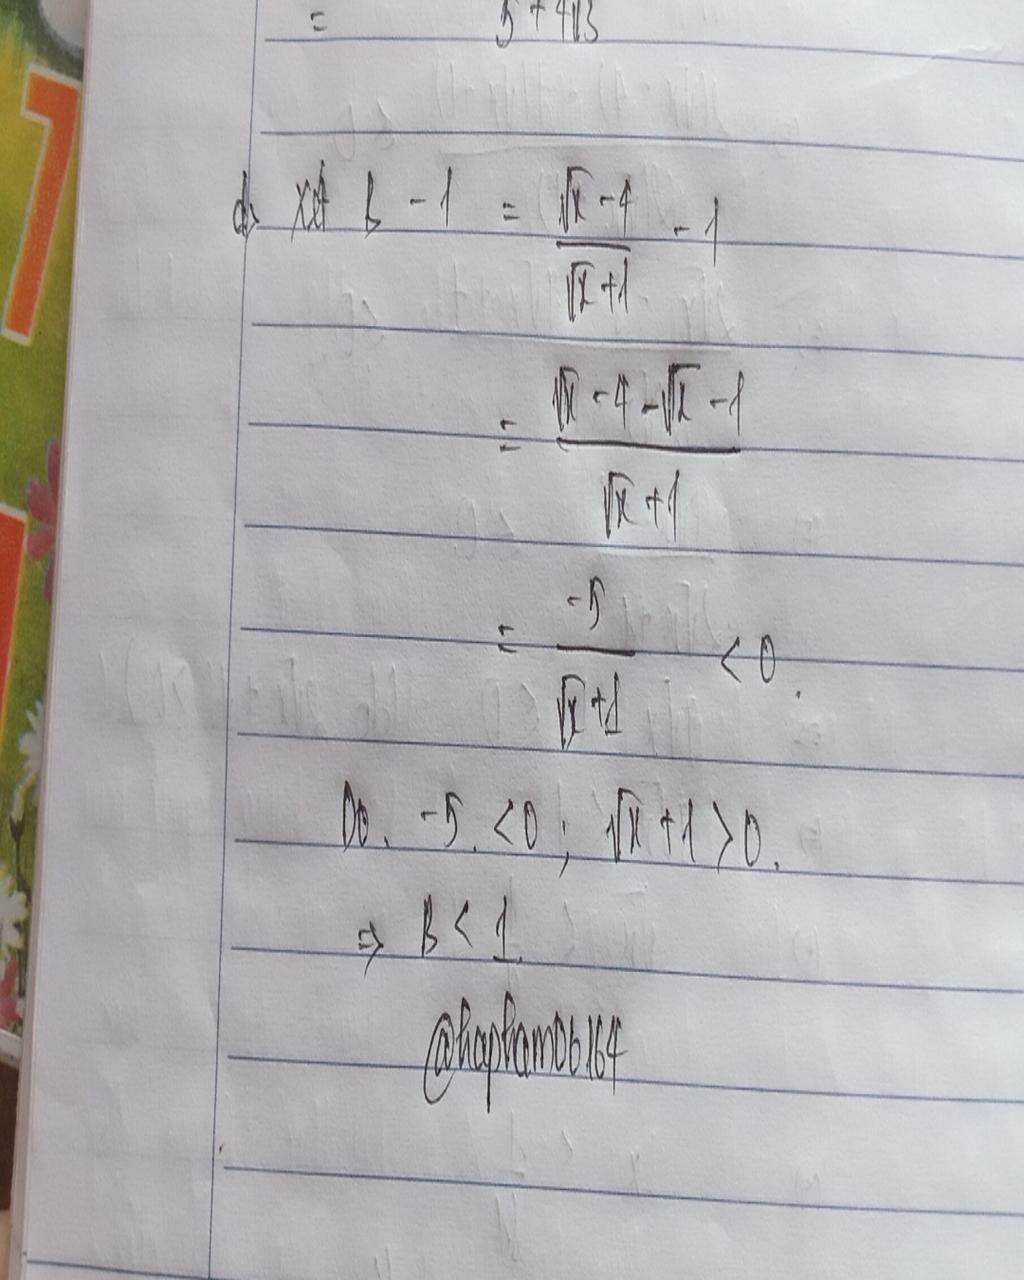 = 5 + 4√3
d) xét B - 1 = (√x - 4)/(√x + 1) - 1
= (√x - 4 - √x - 1)/(√x + 1)
= -5/(√x + 1) < 0.
Do -5 < 0 ; √x + 1 > 0.
⇒ B < 1
@hapham06164